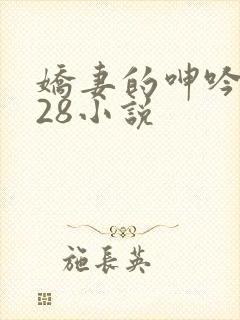 嬌妻的呻吟
28小説
施長英